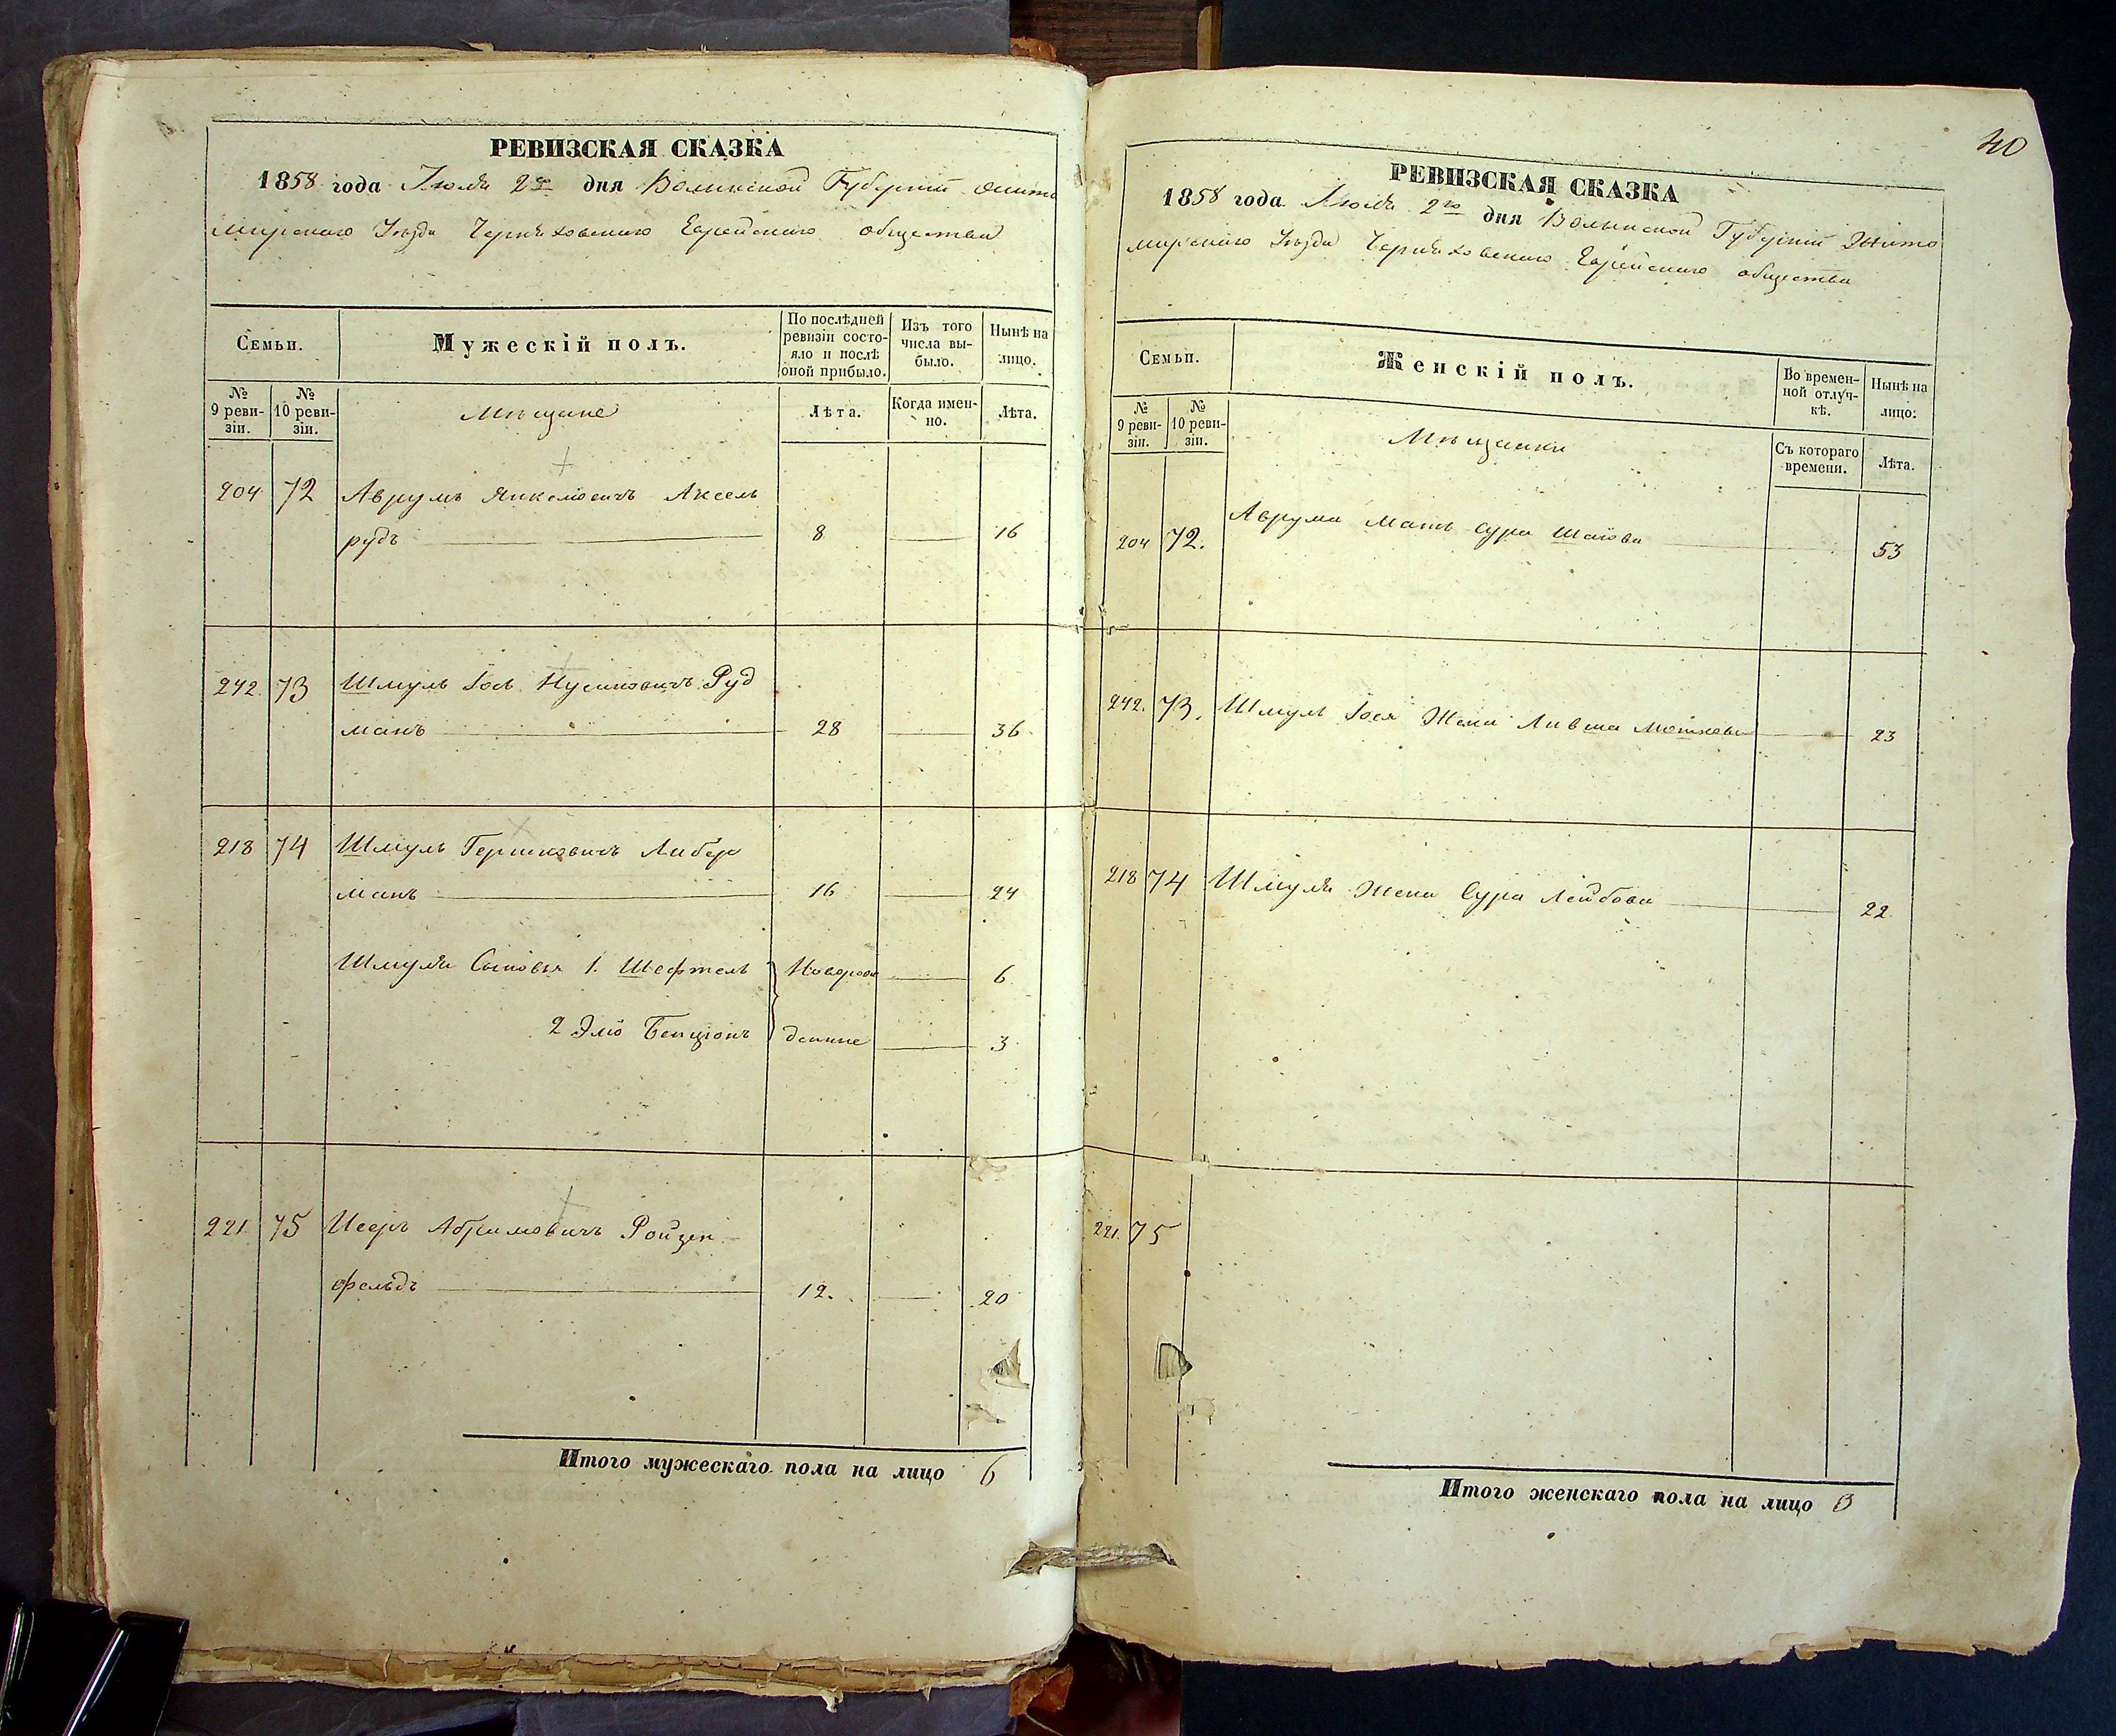 РЕВИЗСКАЯ СКАЗКА
1858 года Іюля 2го дня Волынской Губерніи Жито
мирскаго Уѣзда Черняховскаго Еврейскаго общества
Семьи.
Мужескій полъ.
По послѣдней ревизіи состояло и послѣ оной прибыло.
Изъ того числа выбыло.
Нынѣ на лицо.
№ 9 ревизіи.
№ 10 ревизіи.
Мѣщане
Лѣта.
Когда именно.
Лѣта.
204 72 Аврумъ Янкелевичъ Аксель
рудъ 8 16
242. 73 Шмуль Іось Нусиновичъ Руд
манъ 28 36
218 74 Шмуль Гершковичъ Либер
манъ 16 24
Шмуля Сыновья 1. Шефтель Новорож 6
2 Эліо Бенціонъ денные 3
221. 75 Исеръ Абрамовичъ Ройзен
фельдъ 12. 20
Итого мужескаго пола на лицо 6
40
РЕВИЗСКАЯ СКАЗКА
1858 года Іюля 2го дня Волынской Губерніи Жито
мирскаго Уѣзда Черняховскаго Еврейскаго общества
Семьи.
Женскій полъ.
Во временной отлучкѣ.
Нынѣ на лицо:
№ 9 ревизіи.
№ 10 ревизіи.
Мѣщанки
Съ котораго времени.
Лѣта.
204 72. Аврума Мать Сура Шаіова 53
242. 73. Шмуля Іося Жена Лившa 23
218 74 Шмуля Жена Сура Лейбова 22
221. 75
Итого женскаго пола на лицо 3